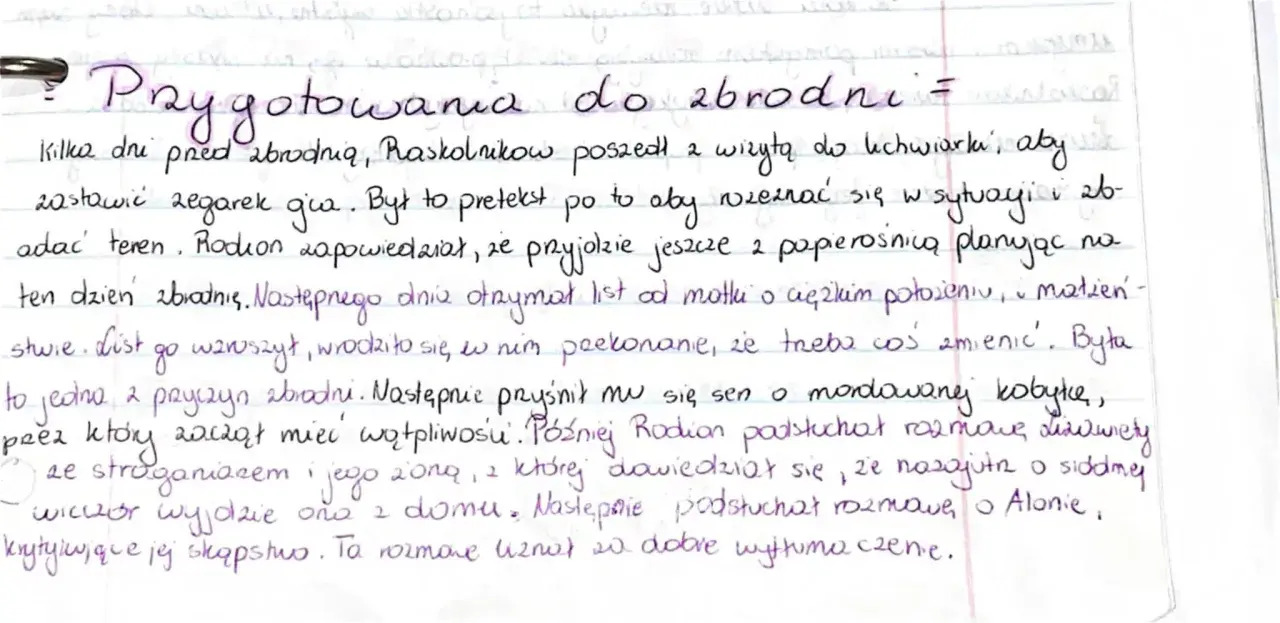 Przygotowania do zbrodni =
Kilka dni przed zbrodnią, Raskolnikow poszedł z wizytą do lichwiarki, aby
zastawić zegarek ojca. Był to pretekst po to aby rozeznać się w sytuacji i zb-
adać teren. Rodion zapowiedział, że przyjdzie jeszcze z papierośnicą planując na
ten dzień zbrodnię. Następnego dnia otrzymał list od matki o ciężkim położeniu, i małżeń-
stwie. List go wzruszył, wrodziło się w nim przekonanie, że trzeba coś zmienić. Była
to jedna z przyczyn zbrodni. Następnie przyśnił mu się sen o mordowanej kobyłce,
przez który zaczął mieć wątpliwości. Później Rodion podsłuchał rozmowę Lizawiety
ze straganiarzem i jego żoną, z której dowiedział się, że nazajutrz o siódmej
wieczór wyjdzie ona z domu. Następnie podsłuchał rozmowę o Alonie,
krytykujące jej skąpstwo. Ta rozmowe uznał za dobre wytłumaczenie.